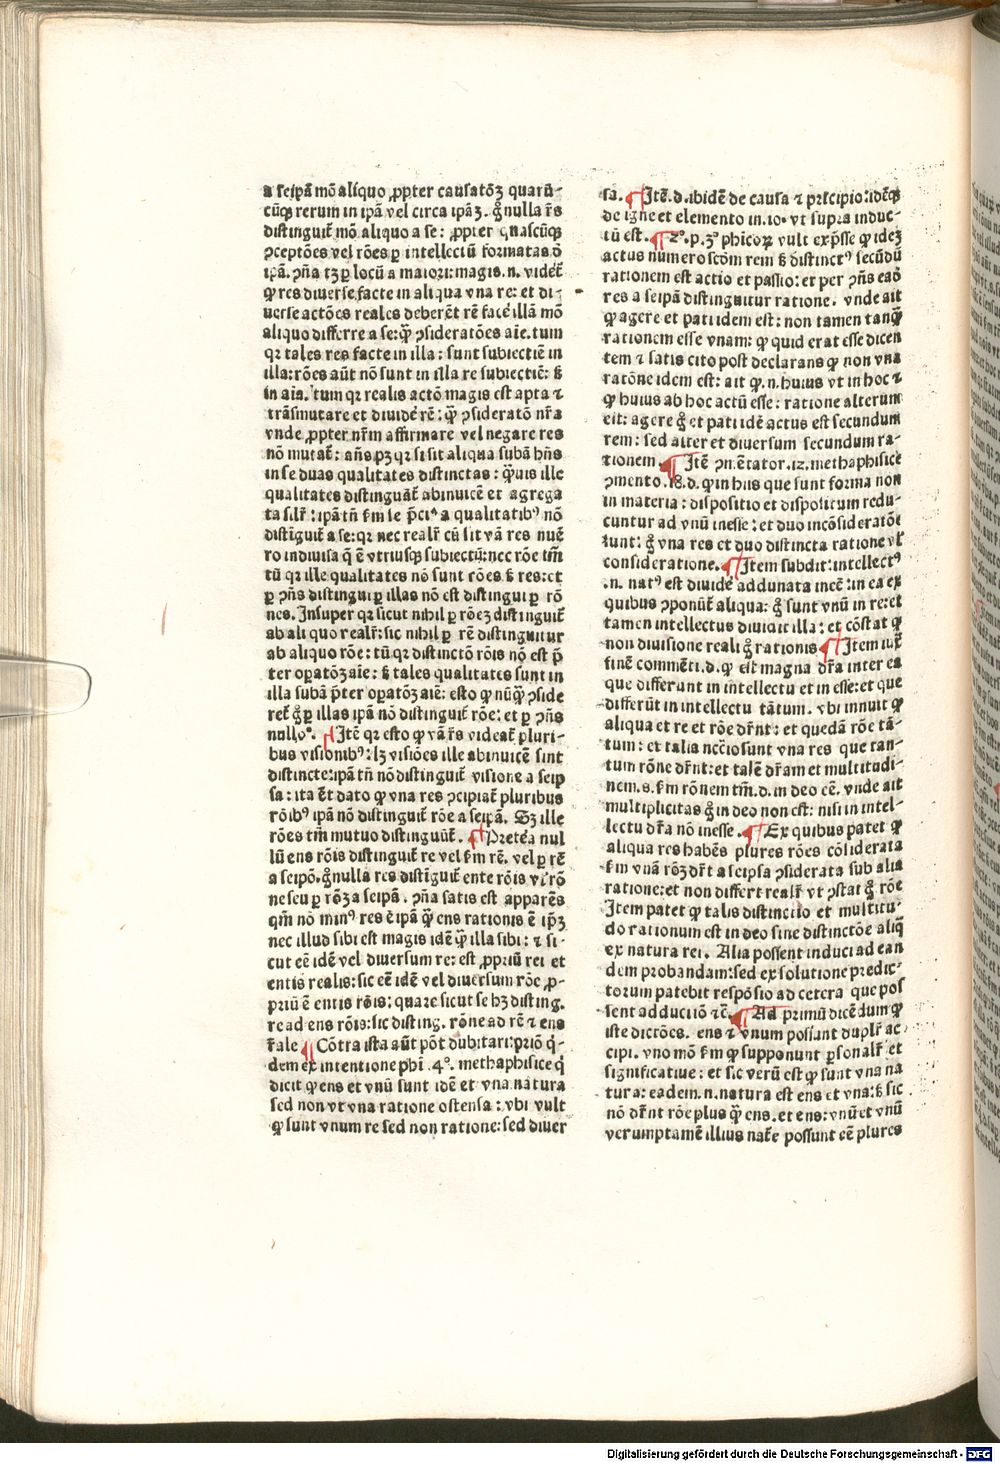 a seipā mō aliquo ꝓpter causatōꝫ quarū-
cūqꝫ rerum in ipā vel circa ipāꝫ. g̊ nulla r̄s
distinguit᷑ mō aliquo a se: ꝓpter quascūqꝫ
ꝯceptōes vel rōes ꝑ intellectū formatas ō
ipā. ꝯ̄na tꝫ ꝑ locū a maiori: magis .n. videt᷑
ꝙ res diuerse facte in aliqua vna re: et di-
uerse actōes reales deberēt rē facē illā mō
aliquo differre a se: ꝙ̄ ꝯsideratōes aīe. tum
qꝛ tales res facte in illa: sunt subiectiē in
illa: rōes aūt nō sunt in illa re subiectiē: ß
in aīa. tum qꝛ realis actō magis est apta ⁊
trāsmutare et diuidē rē: ꝙ̄ ꝯsideratō nr̄a
vnde ꝓpter nr̄m affirmare vel negare res
nō mutat᷑: añs pꝫ qꝛ si sit aliqua subā hñs
in se duas qualitates distinctas: ꝙ̄uis ille
qualitates distinguāt᷑ abinuicē et agrega
ta silr᷑: ipā tñ ẜm se p̄cīᵃ a qualitatibꝰ nō
distīguit᷑ a se: qꝛ nec realr᷑ cū sit vā res nūe᷑
ro indiuisa q̄ ē vtriusqꝫ subiectū: nec rōe tm̄
tū qꝛ ille qualitates nō sunt rōes ß res: et
ꝑ ꝯñs distingui ꝑ illas nō est distingui ꝑ rō
nes. Insuper qꝛ sicut nihil ꝑ rōeꝫ distinguit᷑
ab ali quo realr᷑: sic nihil ꝑ rē distinguitur
ab aliquo rōe: tū qꝛ distinctō rōis nō est p̄
ter oꝑatōꝫ aīe: ß tales qualitates sunt in
illa subā p̄ter oꝑatōꝫ aīe: esto ꝙ nūꝙ̄ ꝯside
ret᷑ g̊ ꝑ illas ipā nō distinguit᷑ rōe: et ꝑ ꝯñs
nullo°. ¶ Itē qꝛ esto ꝙ vā r̄s videat᷑ pluri-
bus visionibꝰ: lꝫ visiōes ille abinuicē sint
distincte: ipā tñ nō distinguit᷑ visione a seip
sa: ita ēt dato ꝙ vna res ꝯcipiat᷑ pluribus
rōibꝰ ipā nō distinguit᷑ rōe a seipā. Sꝫ ille
rōes tm̄ mutuo distinguūt᷑. ¶ Pretēa nul
lū ens rōis distinguit᷑ re vel ẜm rē. vel ꝑ rē
a seipō. g̊ nulla res distīguit᷑ ente rōis vl̓ rō
ne seu ꝑ rōꝫ a seipā. ꝯ̄na satis est apparēs
qm̄ nō minꝰ res ē ipā ꝙ̄ ens rationis ē ip̄ꝫ
nec illud sibi est magis idē ꝙ̄ illa sibi: ⁊ si-
cut eē idē vel diuersum re: est ꝓpriū rei et
entis realis: sic eē idē vel diuersum rōe ꝓ-
priū ē entis rōis: quare sicut se hꝫ disting.
re ad ens rōis: sic disting. rōne ad rē ⁊ ens
r᷑ale ¶ Cōtra ista aūt pōt dubitari: priō q̄-
dem ex intentione phī .4°. methaphisice q̄
dicit ꝙ ens et vnū sunt idē et vna natura
sed non vt vna ratione ostensa: vbi vult
ꝙ sunt vnum re sed non ratione: sed diuer
sa. ¶ Itē .d. ibidē de causa ⁊ prīcipio: idēqꝫ
de igne et elemento in .10. vt supra induc-
tū est. ¶ 2°. p. 3° phicoꝝ vult exp̄sse ꝙ ideꝫ
actus numero scd̄m rem ß distinctꝰ secūdū
rationem est actio et passio: et per ꝯñs eadē
res a seipā distinguitur ratione. vnde ait
ꝙ agere et pati idem est: non tamen tanꝙ̄
rationem esse vnam: ꝙ quid erat esse dicen
tem ⁊ satis cito post declarans ꝙ non vna
ratōne idem est: ait ꝙ .n. huius vt in hoc ⁊
ꝙ huius ab hoc actū esse: ratione alterum
est: agere g̊ et pati idē actus est secundum
rem: sed alter et diuersum secundum ra-
tionem. ¶ Itē ꝯm̄ētator .12. methaphisice
ꝯmento .18. d. ꝙ in hiis que sunt forma non
in materia: dispositio et dispositum redu-
cuntur ad vnū inesse: et duo incōsideratōe
sunt: g̊ vna res et duo distincta ratione vl̓
consideratione. ¶ Item subdit: intellectꝰ
.n. natꝰ est diuidē addunata incē: in ea ex
quibus ꝯponūt᷑ aliqua: g̊ sunt vnū in re: et
tamen intellectus diuidit illa: et cōstat ꝙ
non diuisione reali g̊ rationis ¶ Item iux̄
finē commēti .d. ꝙ est magna dr̄a inter ea
que differunt in intellectu et in esse: et que
differūt in intellectu tātum. vbi innuit ꝙ
aliqua et re et rōe dr̄nt: et quedā rōe tā-
tum: et talia ncc̄io sunt vna res que tan-
tum rōne dr̄nt: et talē dr̄am et multitudi-
nem .s. ẜm rōnem tm̄ .d. in deo eē. vnde ait
multiplicitas g̊ in deo non est: nisi in intel-
lectu dr̄a nō inesse. ¶ Ex quibus patet ꝙ
aliqua res habēs plures rōes cōsiderata
ẜm vnā rōꝫ dr̄t a seipsa ꝯsiderata sub alia
ratione: et non differt realr᷑ vt ꝯstat g̊ rōe
Item patet ꝙ talis distinctio et multitu-
do rationum est in deo sine distinctōe aliq̄
ex natura rei. Alia possent induci ad ean
dem probandam: sed ex solutione predic-
torum patebit respōsio ad cetera que pos
sent adducitō ⁊c̄. ¶ Ad primū dicēdum ꝙ
iste dictōes. ens ⁊ vnum possunt duplr᷑ ac
cipi. vno mō ẜm ꝙ supponunt ꝑsonalr᷑ et
significatiue: et sic verū est ꝙ sunt vna na
tura: eadem .n. natura est ens et vna: ß sic
nō dr̄nt rōe plus ꝙ̄ ens. et ens: vnū et vnū
verumptamē illius nat᷑e possunt eē plures
Digitalisierung gefördert durch die Deutsche Forschungsgemeinschaft - DFG